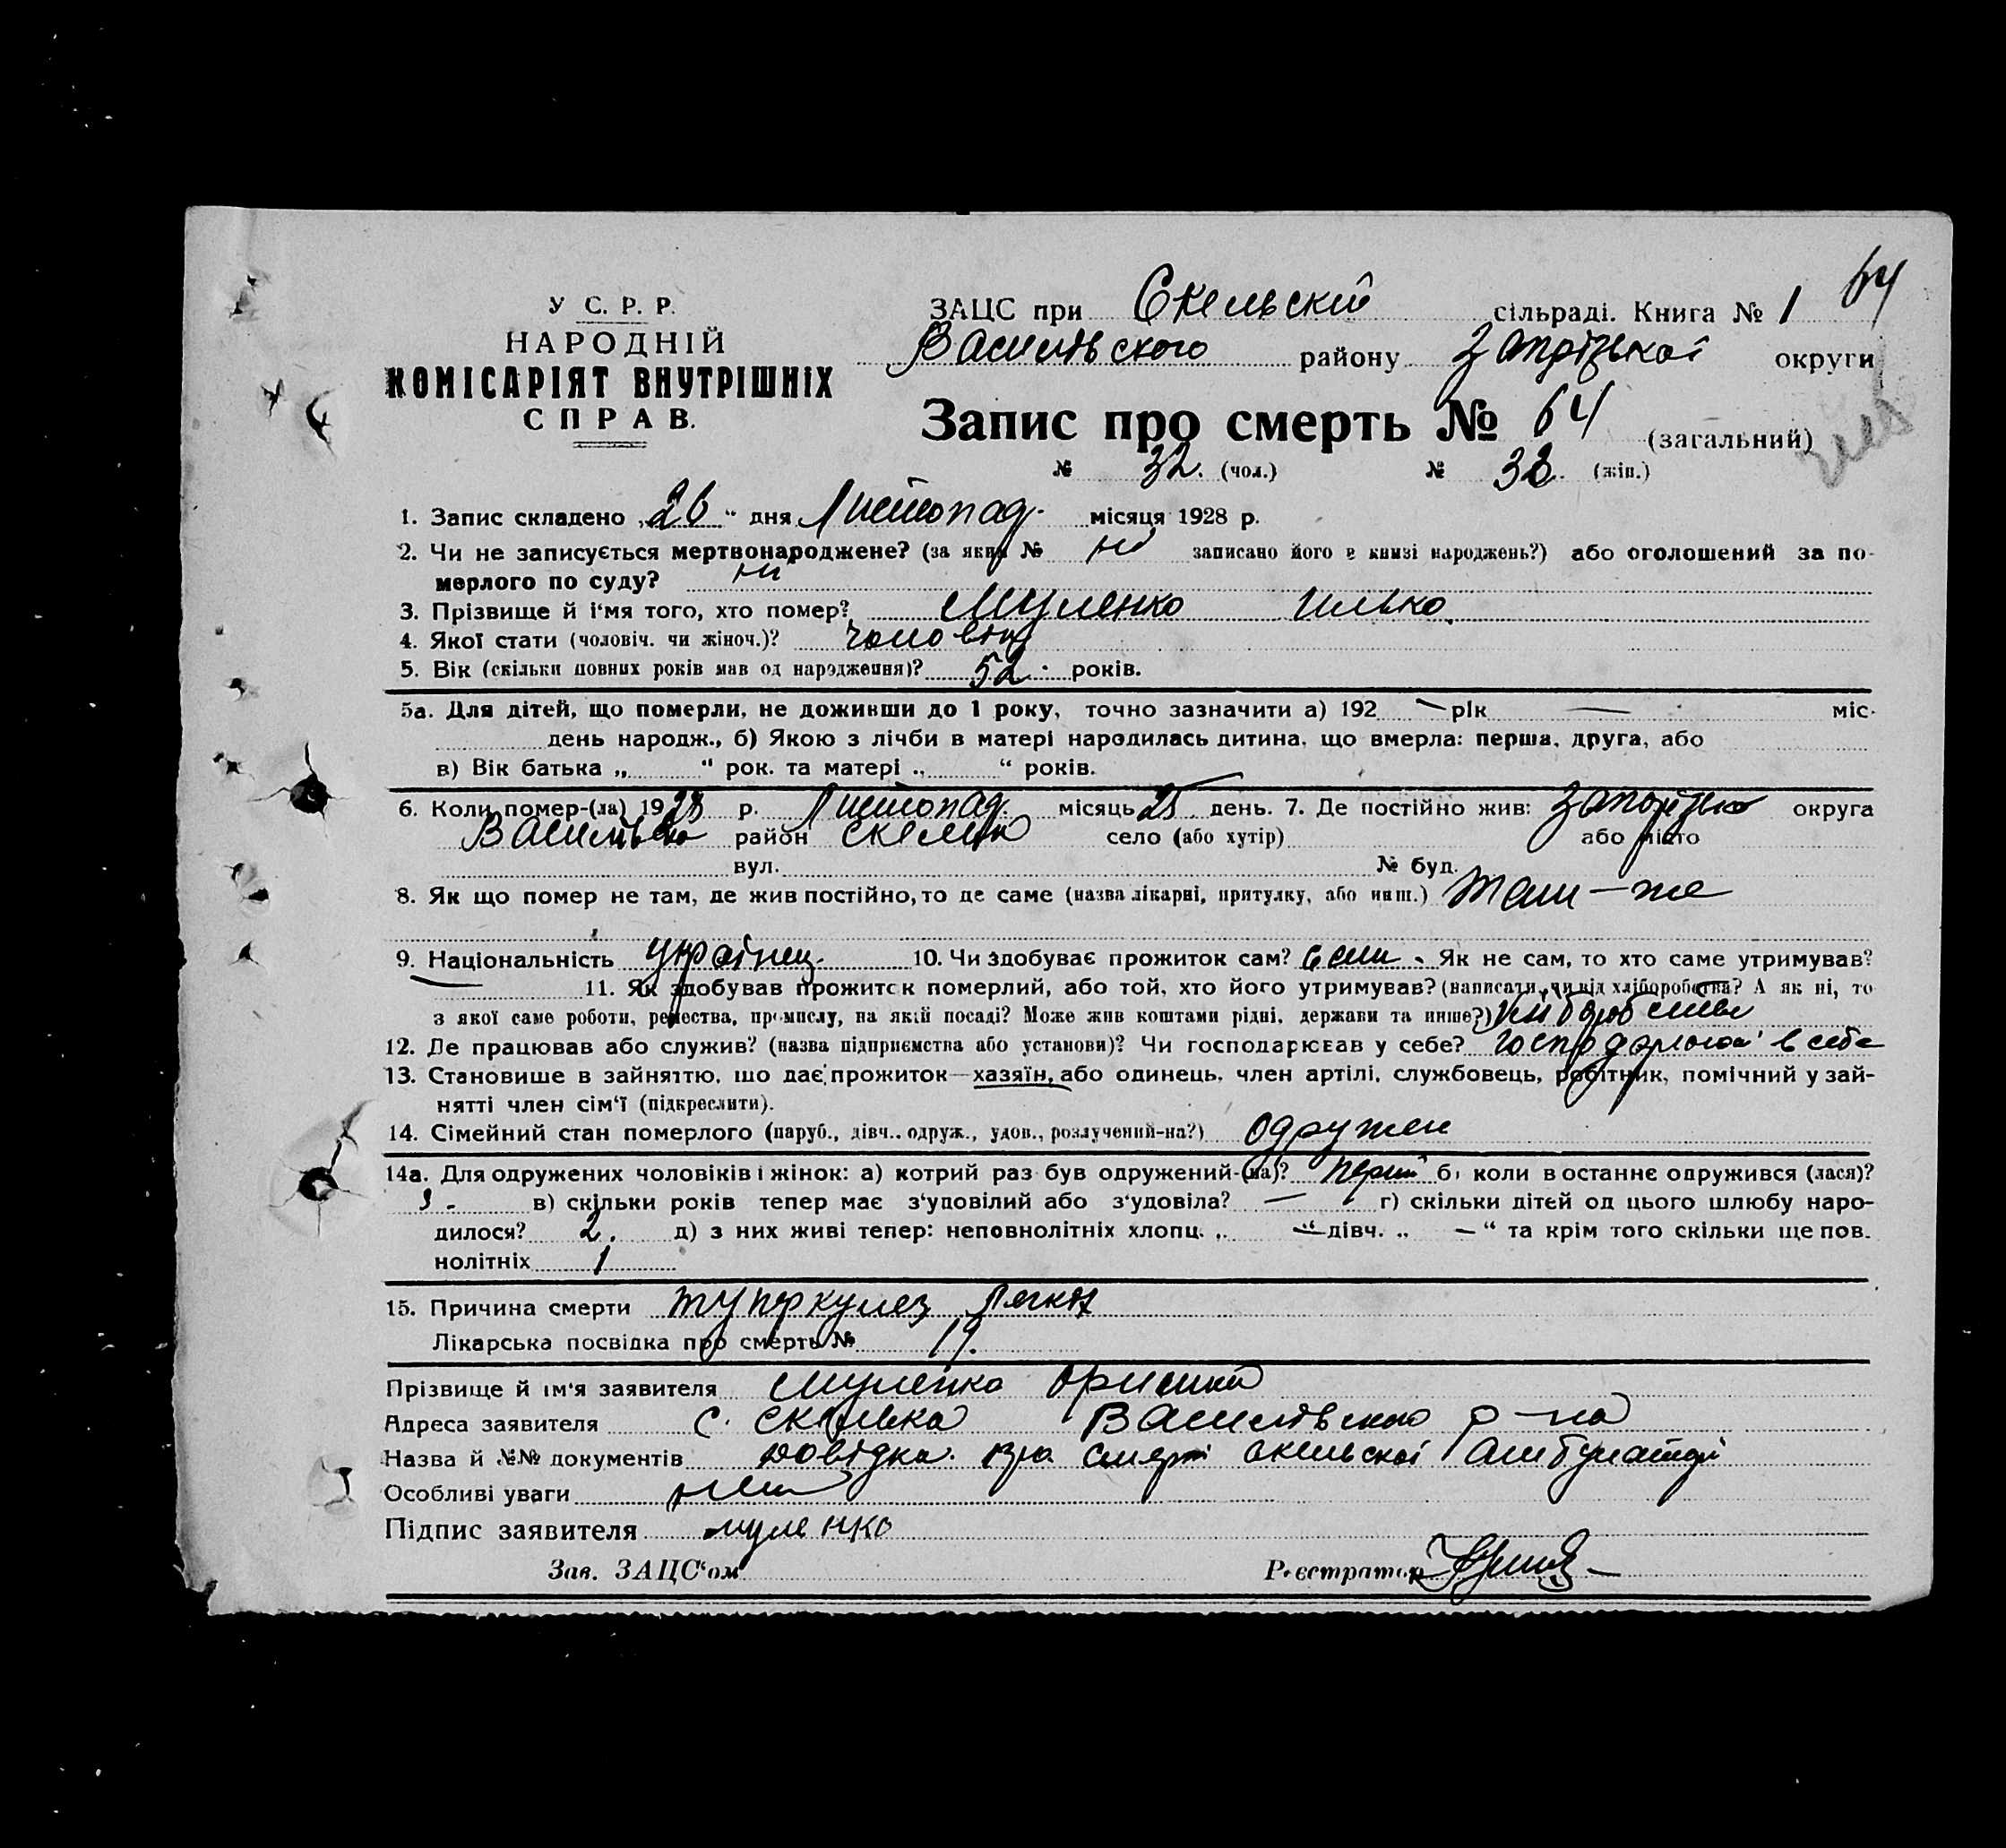 64
У С. Р. Р.
НАРОДНІЙ
КОМІСАРІЯТ ВНУТРІШНІХ
СПРАВ.
ЗАЦС при Скельскій сільраді. Книга № 1
Василівського району Запрізької округи
Запис про смерть № 64 (загальний)
№ 32. (чол.) № 32. (жін.)
1. Запис складено „26“ дня Листопад. місяця 1928 р.
2. Чи не записується мертвонароджене? (за яким № ні записано його в книзі народжень?) або оголошений за по-
мерлого по суду? ні
3. Прізвище й і‘мя того, хто помер? Муленко Илько.
4. Якої стати (чоловіч. чи жіноч.)? чоловіч
5. Вік (скільки повних років мав од народження)? 52 років.
5а. Для дітей, що померли, не доживши до 1 року, точно зазначити а) 192 — рік — міс.
день народж., б) Якою з лічби в матері народилась дитина, що вмерла: перша, друга, або
в) Вік батька „ “ рок. та матері „ “ років.
6. Коли помер-(ла) 1928 р. Листопад. місяць 25 день. 7. Де постійно жив: округа
район село (або хутір) або місто
вул. № буд.
8. Як що помер не там, де жив постійно, то де саме (назва лікарні, притулку, або инш.) там—же
9. Національність Українец. 10. Чи здобуває прожиток сам? Як не сам, то хто саме утримував?
— 11. Як здобував прожиток померлий, або той, хто його утримував? (написати, чи від хліборобства? А як ні, то
з якої саме роботи, ремества, промислу, на якій посаді? Може жив коштами рідні, держави та инше?)
12. Де працював або служив? (назва підприємства або установи)? Чи господарював у себе? в себе
13. Становище в зайняттю, що дає прожиток—хазяїн, або одинець, член артілі, службовець, робітник, помічний у зай-
нятті член сім‘ї (підкреслити).
14. Сімейний стан померлого (паруб., дівч., одруж., удов., розлучений-на?) одружен
14а. Для одружених чоловіків і жінок: а) котрий раз був одружений-(на)? перший б) коли в останнє одружився (лася)?
в) скільки років тепер має з‘удовілий або з‘удовіла? — г) скільки дітей од цього шлюбу наро-
дилося? 2. д) з них живі тепер: неповнолітніх хлопц. „ —“ дівч. „ —“ та крім того скільки ще пов.
нолітніх 1
15. Причина смерти легких
Лікарська посвідка про смерть № 19.
Прізвище й ім‘я заявителя Муленко
Адреса заявителя с. Скелька Василівського р—на
Назва й №№ документів довідка про смерть скельскої
Особливі уваги нет
Підпис заявителя муленко
Зав. ЗАЦС‘ом Реєстратор